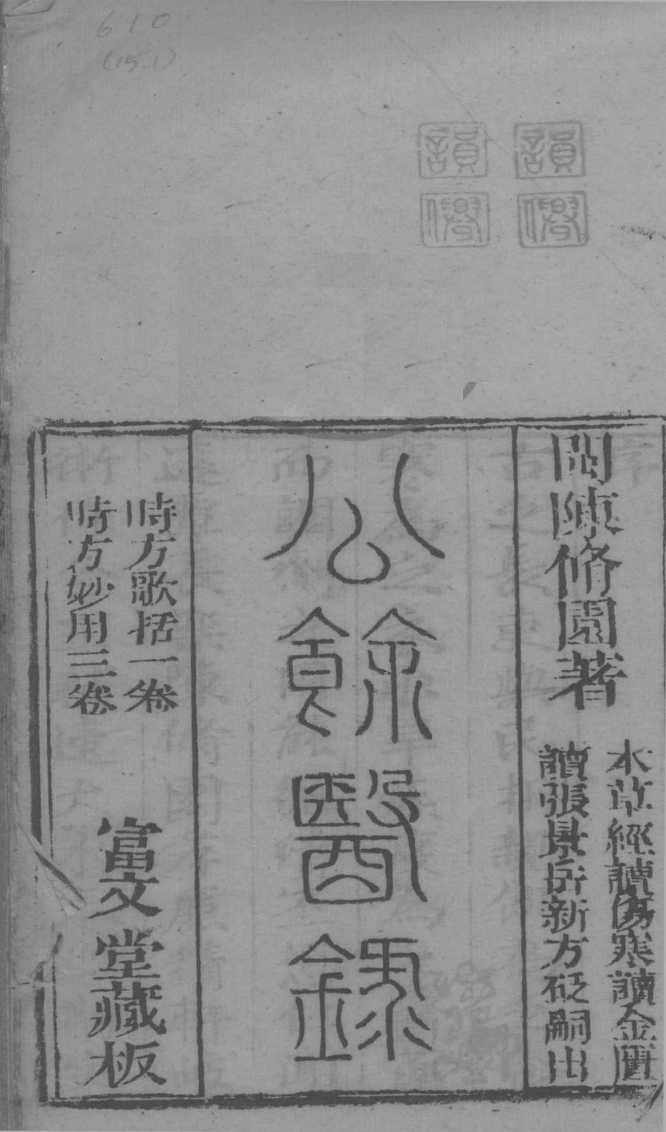 610
(15.1)
閩陳脩園著
本草經讀傷寒讀金匱
讀張景岳新方砭嗣出
公餘醫錄
時方歌括一卷
時方妙用三卷
富文堂藏板